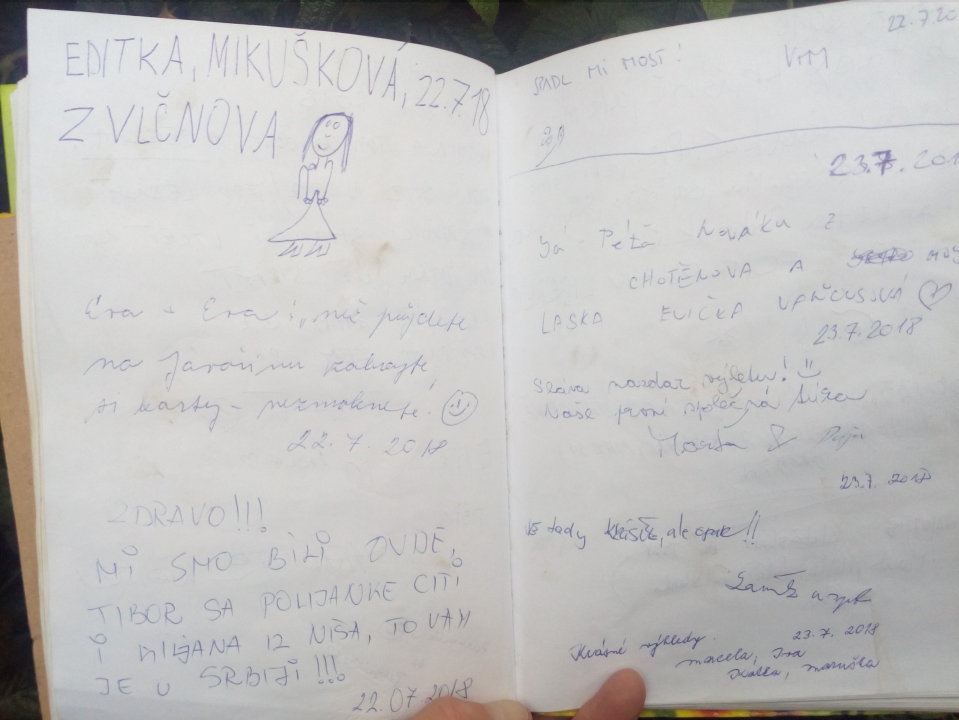 EDITKA, MIKUŠKOVÁ, 22.7.18
Z VLČNOVA
Eva + Eva i, než půjdete
na Javořinu zahrajte
si karty - nezmoknete!
22.7.2018
ZDRAVO!!!
MI SMO BILI OVDE,
TIBOR SA POLIJANKE CITI
I MILJANA IZ NIŠA, TO VAM
JE U SRBIJI!!!
22.07.2018
22.7.20
SPADL MI MOST! 
23.7.201
Já Péťa Nováků z
CHOTĚNOVA A
LASKA EVIČKA VAŇOUSOVÁ
23.7.2018
nazdar výletu!
Naše první společná túra
&
23.7. 2018
tady ale
Krásné výhledy.
23.7.2018
marcela, Iva
maruška